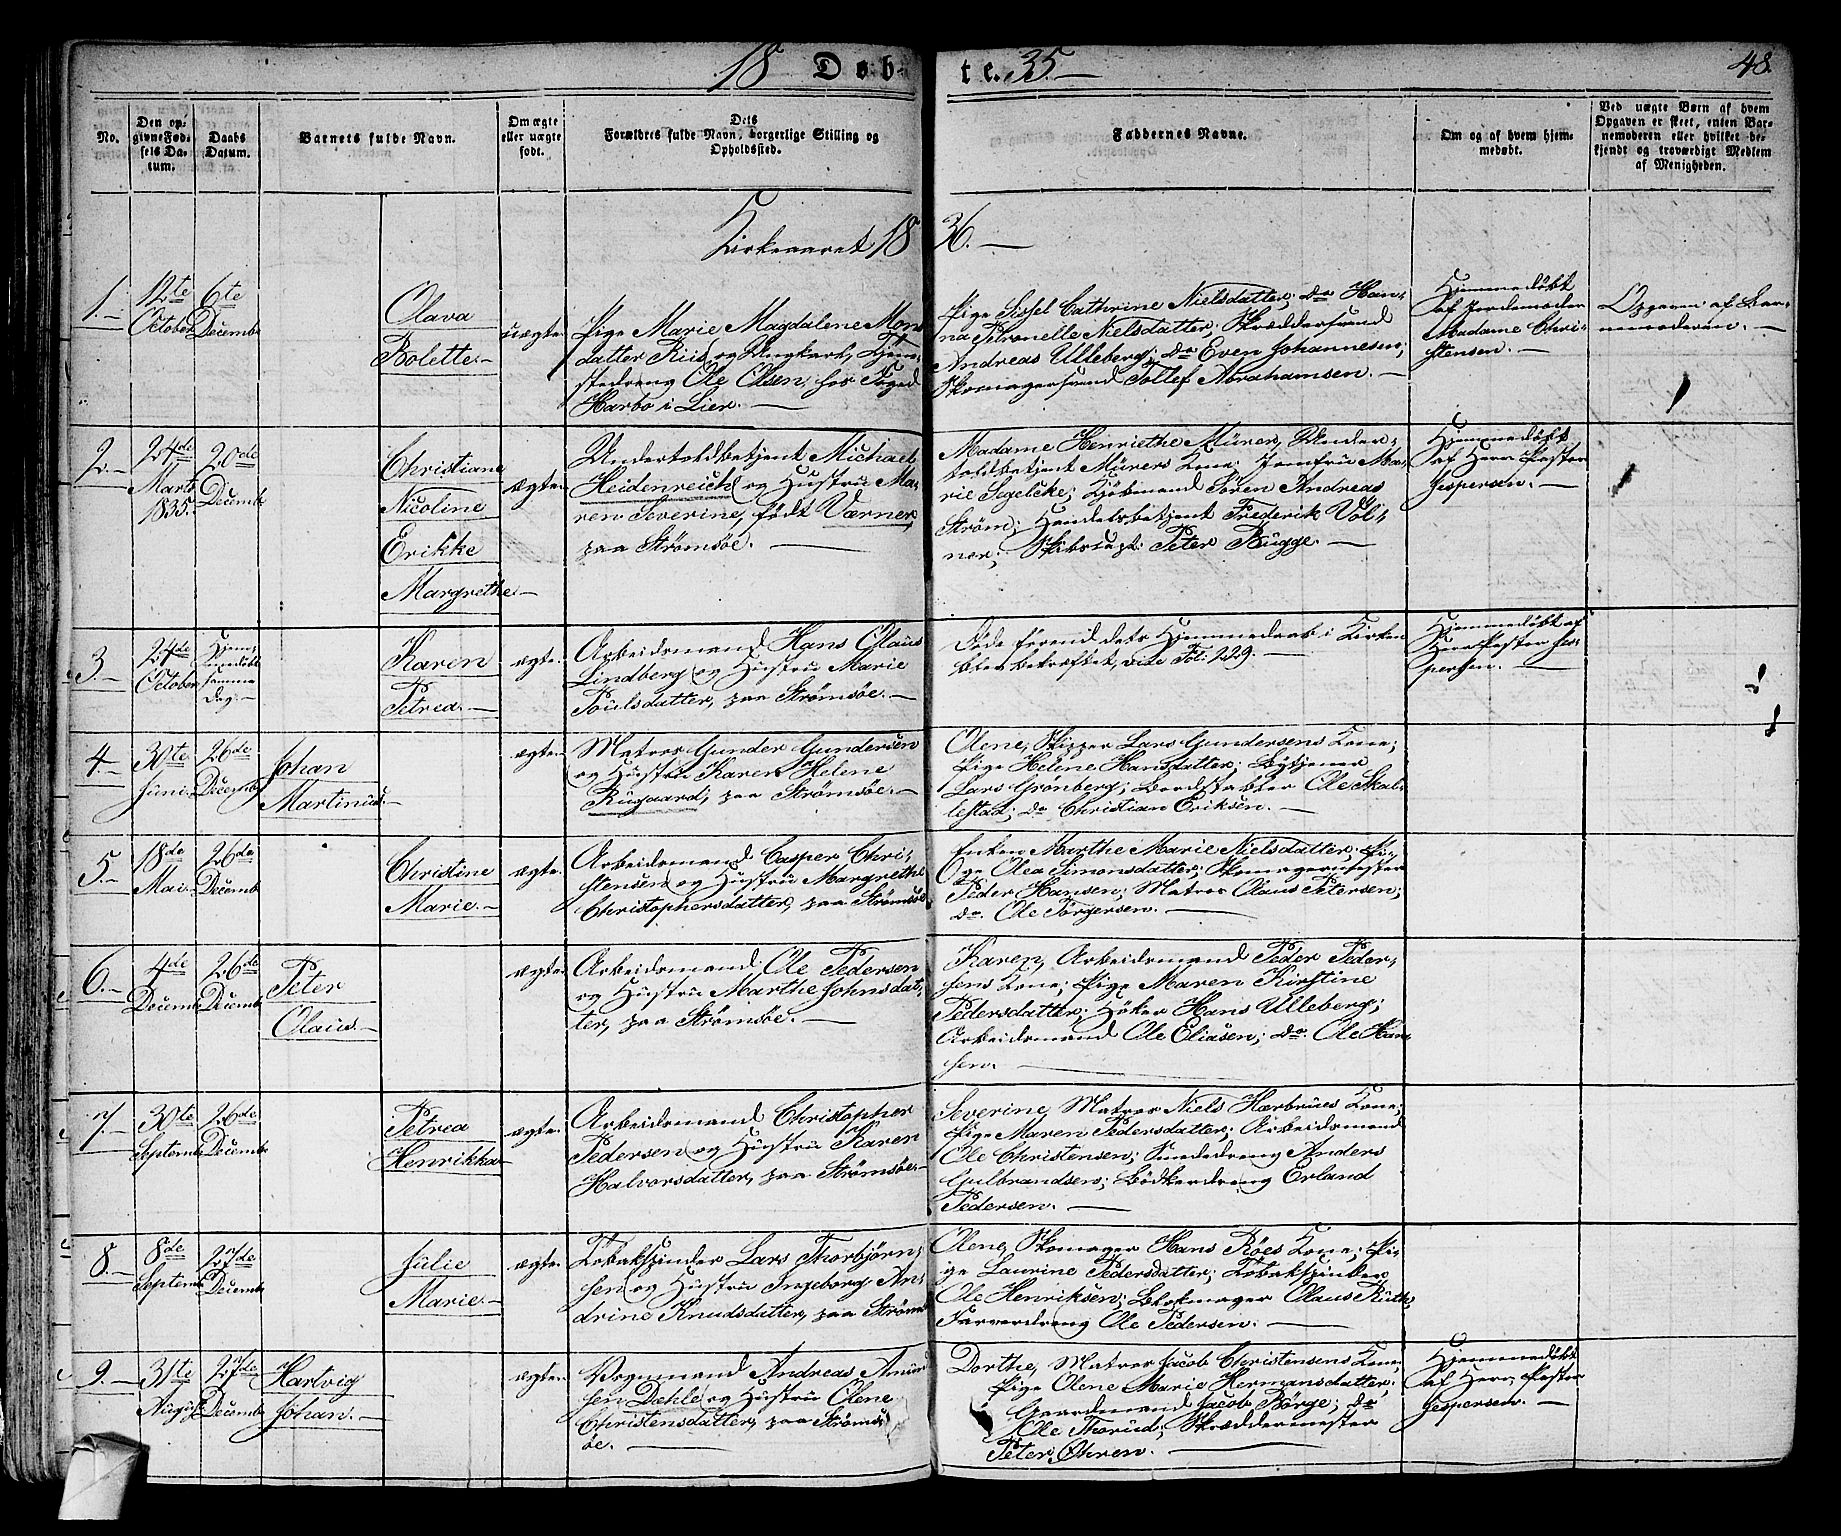 18 Døb-
te. 35
48.
No.
Den op-
givne Fød-
sels Da-
tum.
Daabs
Datum.
Barnets fulde Navn.
Om ægte
eller uægte
født.
Dets
Forældres fulde Navn, borgerlige Stilling og
Opholdssted.
Faddernes Navne.
Om og af hvem hjem-
medøbt.
Ved uægte Børn af hvem
Opgaven er skeet, enten Bar-
nemoderen eller hvilket be-
kjendt og troværdigt Medlem
af Menigheden.
Kirkeaaret 1836.
1.
12te
October
6te
Decembr
Olava
Bolette.
uægte
Pige Marie Magdalene Mons
datter Riis, og Ungkarl, Tjene-
stedreng Ole Olsen, hos Foged
Harbo i Lier.
Pige Sissel Cathrine Nielsdatter; do Han-
na Petronelle Nielsdatter; Skræddersvend
Andreas Ulleberg; do Even Johannesen;
Skomagersvend Tollef Abrahamsen.
Hjemmedøbt
af Jordemoder
Madame Chri-
stensen.
Opgiven af Bar-
nemoderen.
2.
24de
Marts
1835.
20de
Decembr
Christiane
Nicoline
Erikke
Margrethe.
ægte.
Undertoldbetjent Michael
Heidenreich og Hustru Ma-
ren Severine, født Værner,
paa Strømsøe.
Madame Henriethe Mürer, Under-
toldbetjent Mürers Kone; Jomfru Ma-
rie Segelcke; Kjøbmand Sören Andreas
Ström; Handelsbetjent Frederik Vol-
ner; Skibscapt: Peter Bugge.
Hjemmedøbt
af Herr Pastor
Jespersen.
3.
24de
October
Hjem-
medøbt
samme
Dag.
Karen
Petrea.
ægte.
Arbeidsmand Hans Olaus
Lindberg og Hustru Marie
Poulsdatter, paa Strømsøe.
Døde førend dets Hjemmedaab i Kirken
blev bekræftet, vide Fol: 229.
Hjemmedøbt af
Herr Pastor Je-
spersen.
4.
30te
Juni
26de
Decembr
Johan
Martinus.
ægte.
Matros Gunder Gundersen
og Hustru Karen Helene
Rugaard, paa Strømsøe.
Olene, Skipper Lars Gundersens Kone;
Pige Helene Hansdatter; Bytjener
Lars Grönberg; Bordstabler Ole Skal-
lestad; do Christian Eriksen.
5.
18de
Mai
26de
Decembr
Christine
Marie.
ægte.
Arbeidsmand Casper Chri-
stensen og Hustru Margrethe
Christophersdatter, paa Strømsøe.
Enken Marthe Marie Nielsdatter; Pi-
ge Olea Simonsdatter; Skomagermester
Peder Hansen; Matros Olaus Petersen;
do. Ole Törgersen.
6.
4de
Decembr
26de
Decembr
Peter
Olaus.
ægte.
Arbeidsmand Ole Pedersen
og Hustru Marthe Johnsdat-
ter, paa Strømsøe.
Karen, Arbeidsmand Peder Peder-
sens Kone; Pige Maren Kirstine
Pedersdatter; Höker Hans Ulleberg;
Arbeidsmand Ole Eliasen; do. Ole Han-
sen.
7.
30te
Septembr
26de
Decembr
Petrea
Henrikka
ægte.
Arbeidsmand Christopher
Pedersen og Hustru Karen
Halvorsdatter, paa Strømsøe.
Severine, Matros Niels Hærbrües Kone;
Pige Maren Pedersdatter; Arbeidsmand
Ole Christensen; Smededreng Anders
Gulbrandsen; Bödkerdreng Erland
Pedersen.
8.
8de
Septembr
27de
Decembr
Julie
Marie.
ægte.
Tobakspinder Lars Thorbjørn-
sen og Hustru Ingeborg An-
drine Knudsdatter, paa Strømsøe
Olene, Skomager Hans Röes Kone; Pi-
ge Laurine Pedersdatter; Tobakspinder
Ole Henriksen; Blokmager Olaus Ruth;
Farverdreng Ole Pedersen.
9.
31te
August
27de
Decembr
Hartvig
Johan.
ægte.
Vognmand Andreas Amund-
sen Dæhle og Hustru Olene
Christensdatter, paa Strøms-
øe.
Dorthe, Matros Jacob Christensens Kone;
Pige Olene Marie Hermansdatter;
Gaardmand Jacob Börge; do
Ole Thorud; Skræddermester
Peter Öhren.
Hjemmedøbt
af Herr Pastor
Jespersen.